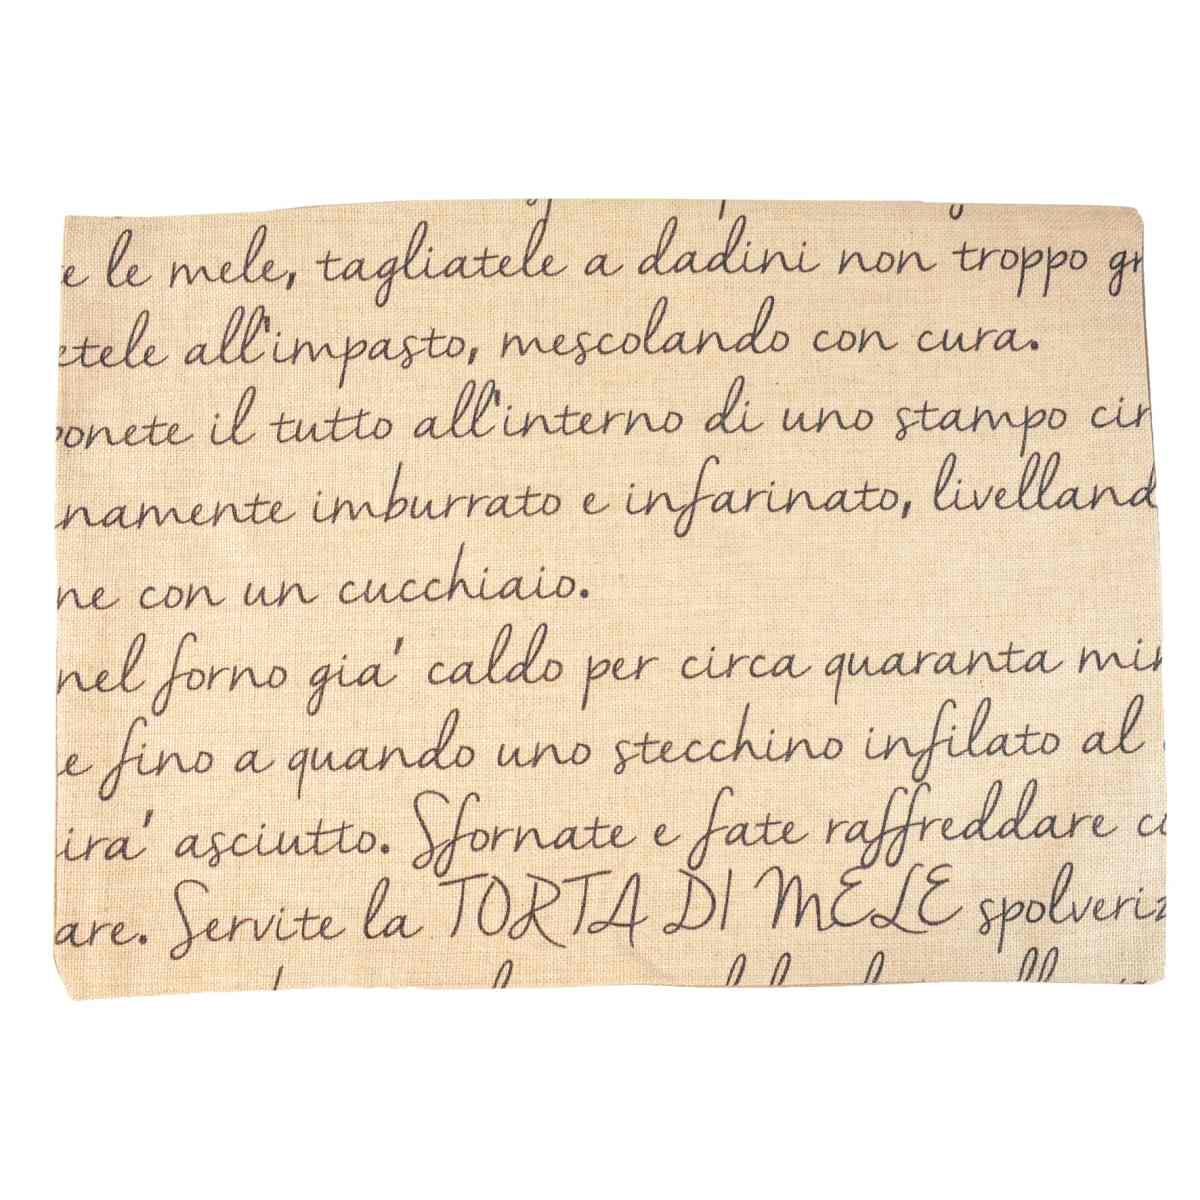 e le mele, tagliatele a dadini non troppo gr
etele all'impasto, mescolando con cura.
ponete il tutto all'interno di uno stampo cir
namente imburrato e infarinato, livelland
ne con un cucchiaio.
nel forno gia' caldo per circa quaranta min
e fino a quando uno stecchino infilato al
ira' asciutto. Sfornate e fate raffreddare co
are. Servite la TORTA DI MELE spolveriz